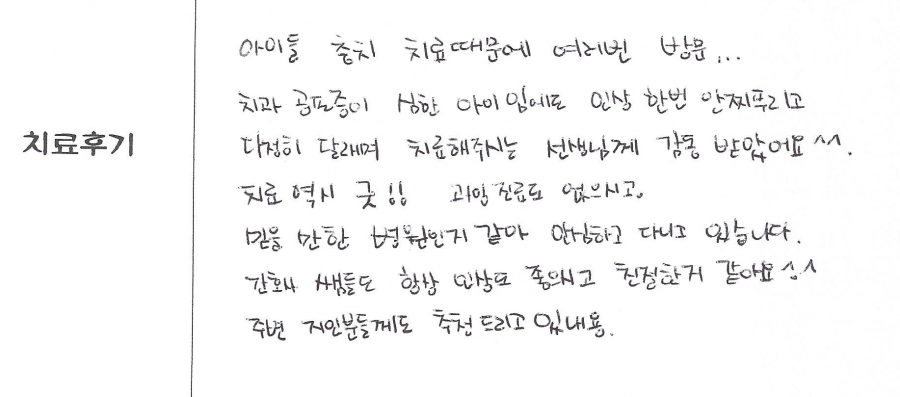 치료후기
아이들 충치 치료때문에 여러번 방문...
치과 공포증이 심한 아이임에도 인상 한번 안찌푸리고
다정히 달래며 치료해주시는 선생님께 감동 받았어요^^.
치료 역시 굿!! 과잉진료도 없으시고.
믿을 만한 병원인지 같아 안심하고 다니고 있습니다.
간호사 쌤들도 항상 인상도 좋으시고 친절한거 같아요^^
주변 지인분들께도 추천드리고 있내용.